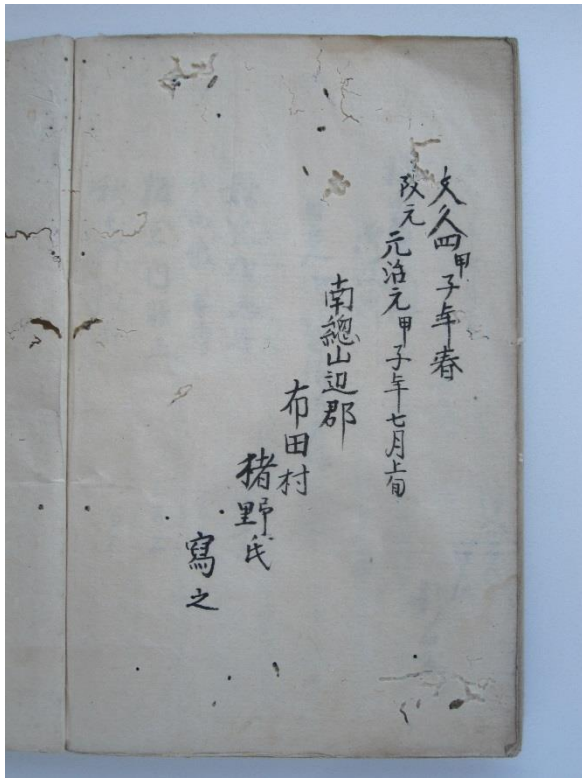 文久四甲子年春
改元 元治元甲子年七月上旬
南總山辺郡
布田村
猪野氏
寫之